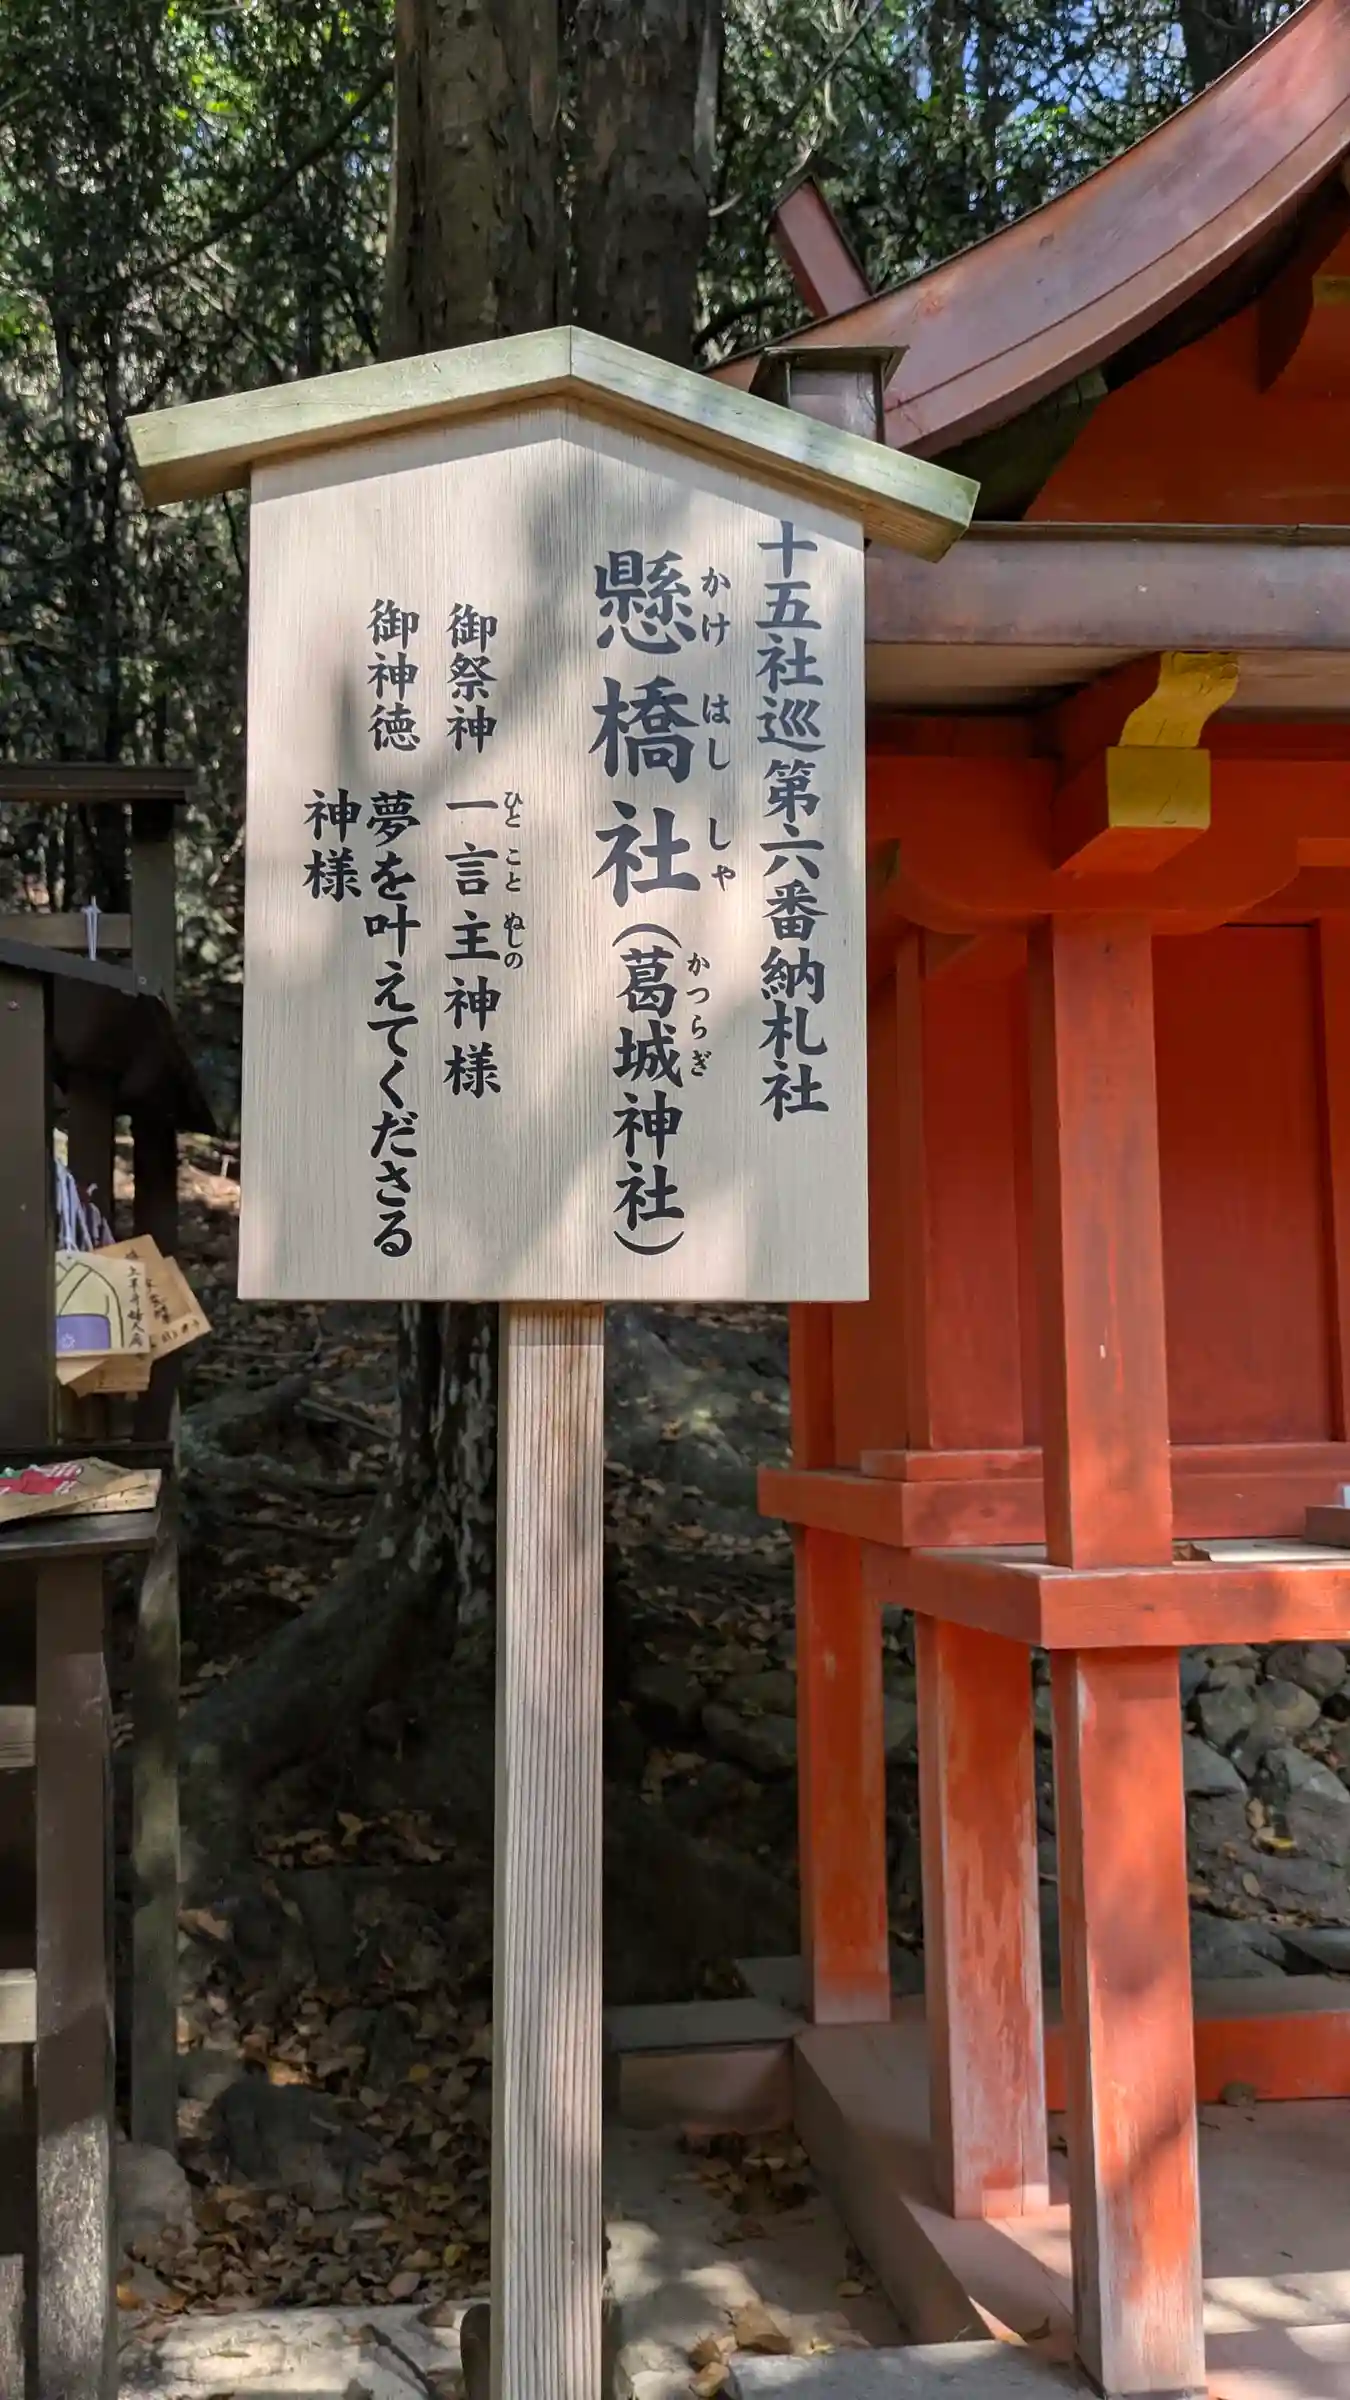 十五社巡第六番納札社
懸橋社(葛城神社)
かけ はし しゃ かつらぎ
御祭神 一言主神様
ひと こと ぬしの
御神徳 夢を叶えてくださる
神様